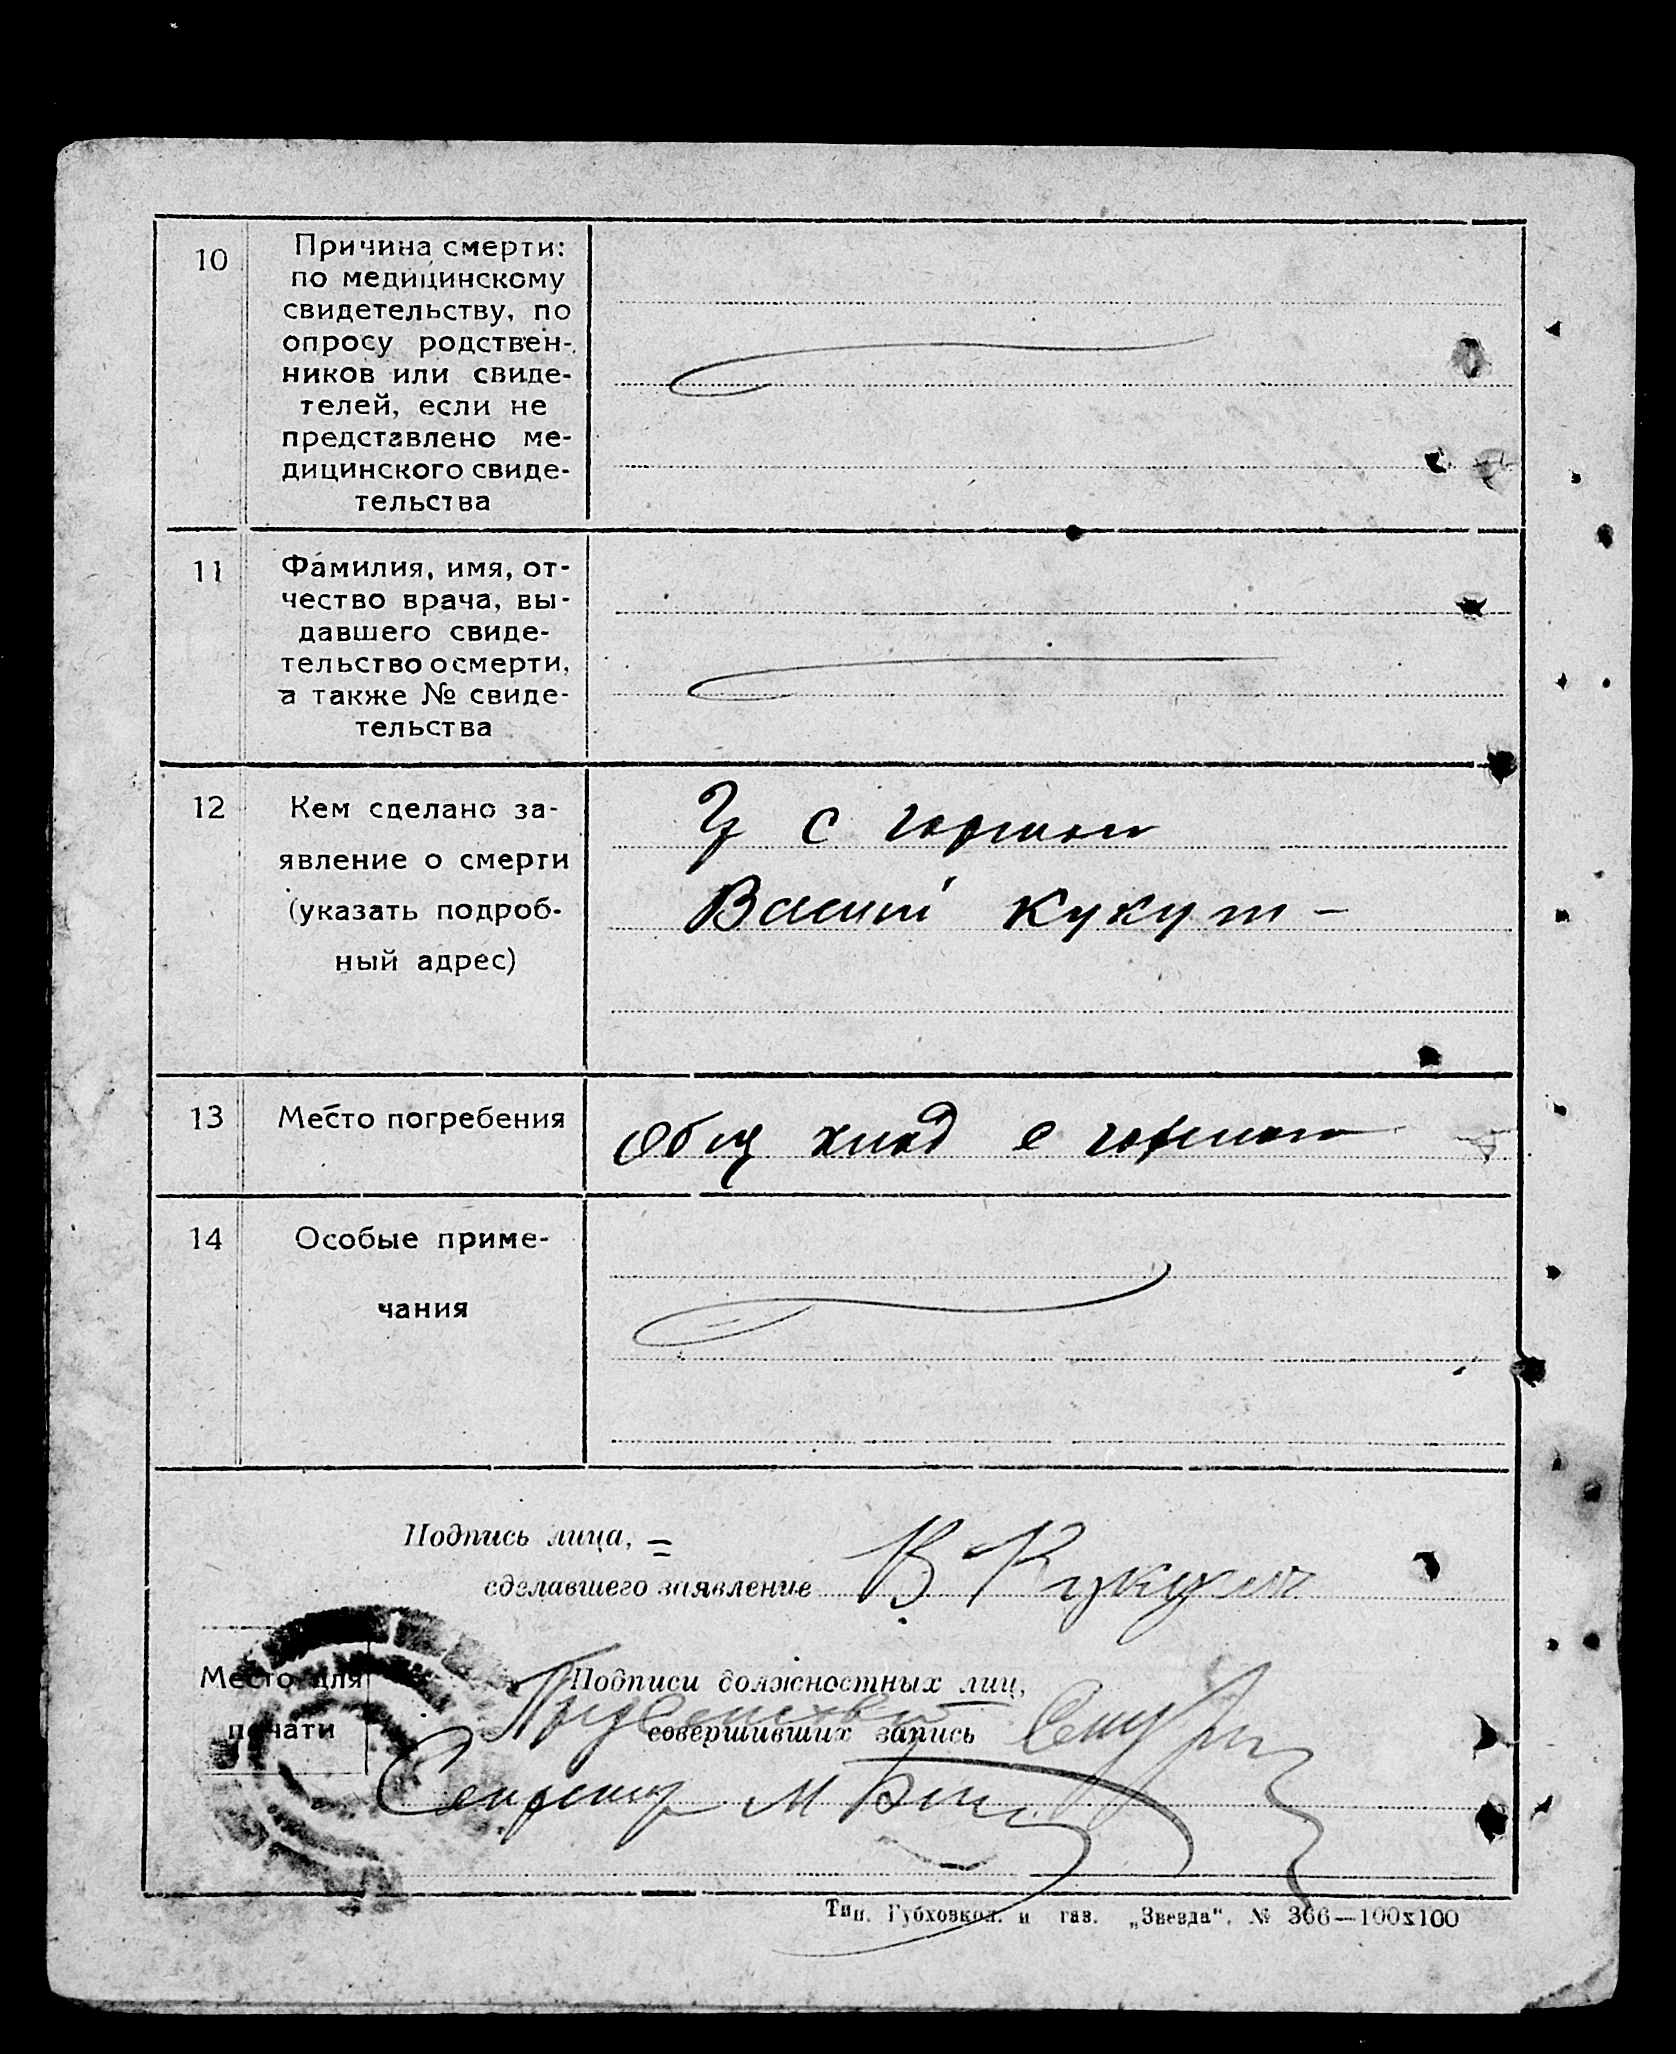 10
Причина смерти:
по медицинскому
свидетельству, по
опросу родствен-
ников или свиде-
телей, если не
представлено ме-
дицинского свиде-
тельства
11
Фамилия, имя, от-
чество врача, вы-
давшего свиде-
тельство о смерти,
а также № свиде-
тельства
12
Кем сделано за-
явление о смерти
(указать подроб-
ный адрес)
с
Васили Кукут -
13
Место погребения
Общ клад с
14
Особые приме-
чания
Подпись лица,
сделавшего заявление В Кукут
Место для
печати
Подписи должностных лиц,
совершивших запись
Секретар М
Тип. Губхозкол. и газ. „Звезда“. № 366—100x100